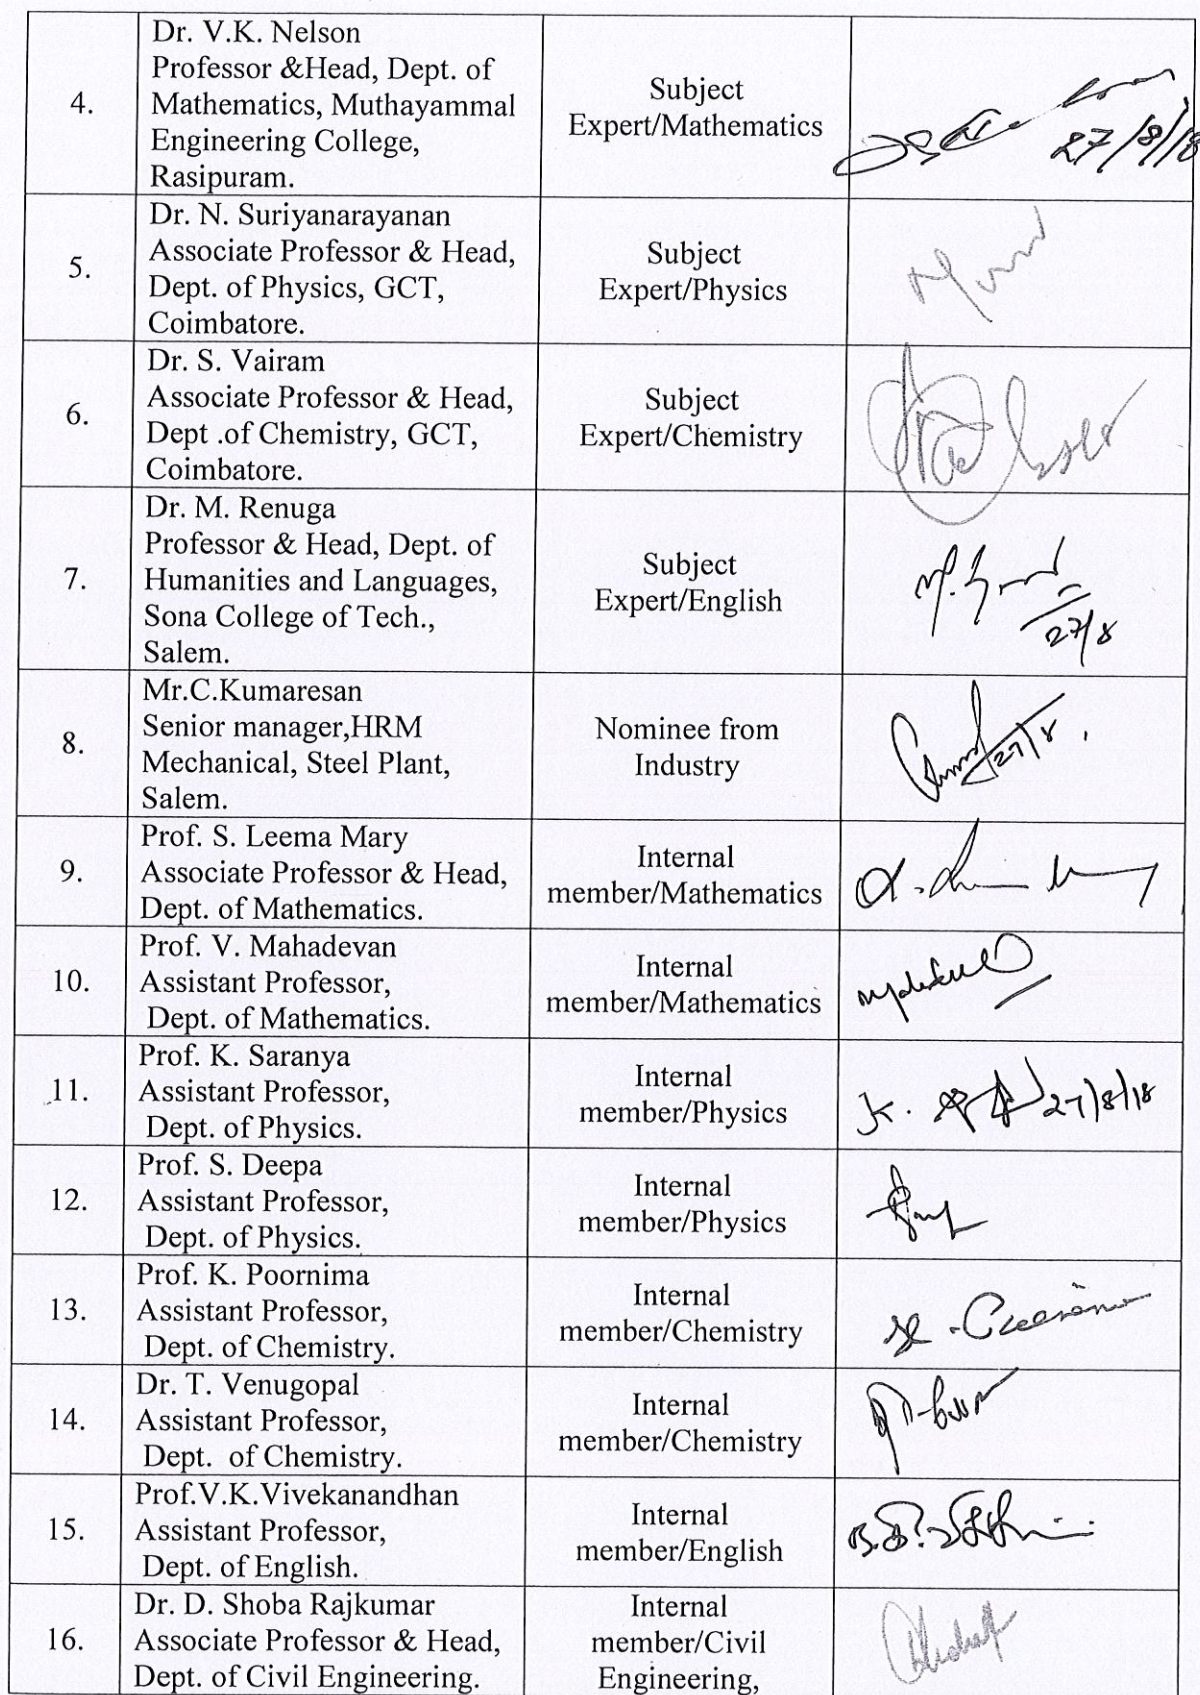 4.
Dr. V.K. Nelson
Professor &Head, Dept. of
Mathematics, Muthayammal
Engineering College,
Rasipuram.
Subject
Expert/Mathematics
27/8/18
5.
Dr. N. Suriyanarayanan
Associate Professor & Head,
Dept. of Physics, GCT,
Coimbatore.
Subject
Expert/Physics
6.
Dr. S. Vairam
Associate Professor & Head,
Dept .of Chemistry, GCT,
Coimbatore.
Subject
Expert/Chemistry
7.
Dr. M. Renuga
Professor & Head, Dept. of
Humanities and Languages,
Sona College of Tech.,
Salem.
Subject
Expert/English
27/8
8.
Mr.C.Kumaresan
Senior manager,HRM
Mechanical, Steel Plant,
Salem.
Nominee from
Industry
27/8
9.
Prof. S. Leema Mary
Associate Professor & Head,
Dept. of Mathematics.
Internal
member/Mathematics
10.
Prof. V. Mahadevan
Assistant Professor,
Dept. of Mathematics.
Internal
member/Mathematics
11.
Prof. K. Saranya
Assistant Professor,
Dept. of Physics.
Internal
member/Physics
27/8/18
12.
Prof. S. Deepa
Assistant Professor,
Dept. of Physics.
Internal
member/Physics
13.
Prof. K. Poornima
Assistant Professor,
Dept. of Chemistry.
Internal
member/Chemistry
14.
Dr. T. Venugopal
Assistant Professor,
Dept. of Chemistry.
Internal
member/Chemistry
15.
Prof.V.K.Vivekanandhan
Assistant Professor,
Dept. of English.
Internal
member/English
16.
Dr. D. Shoba Rajkumar
Associate Professor & Head,
Dept. of Civil Engineering.
Internal
member/Civil
Engineering,